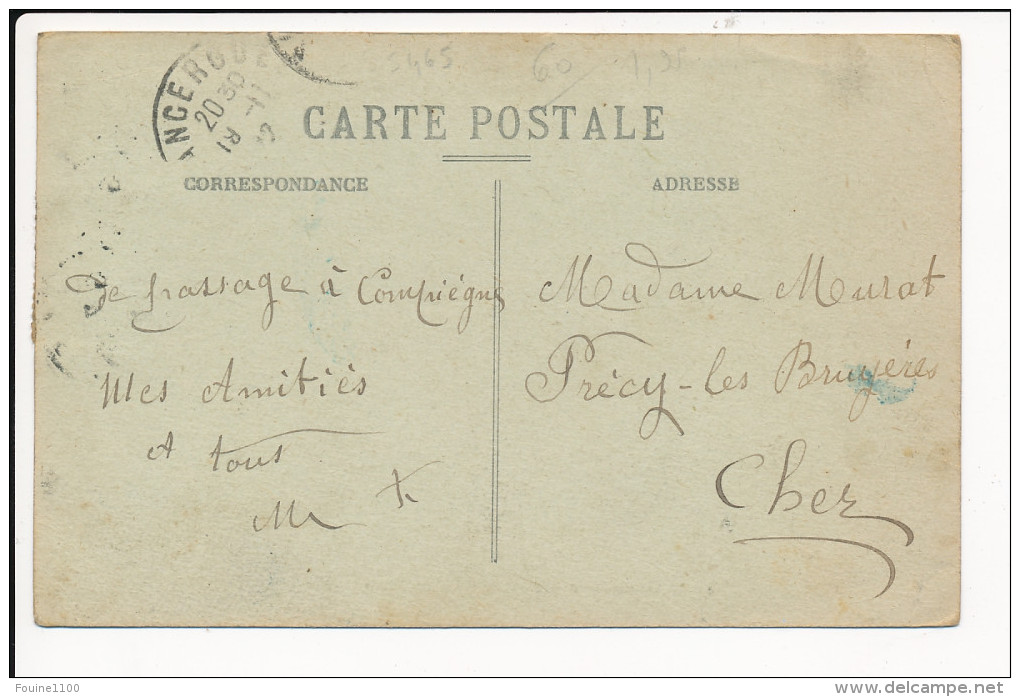 ANGERODE
20 30
18
60
CARTE POSTALE
CORRESPONDANCE
ADRESSE
De passage à Compiégne
Mes Amitiés
A tous
M
Madame Murat
Précy-les Bruyéres
Cher
Fouine1100
delcampe.net